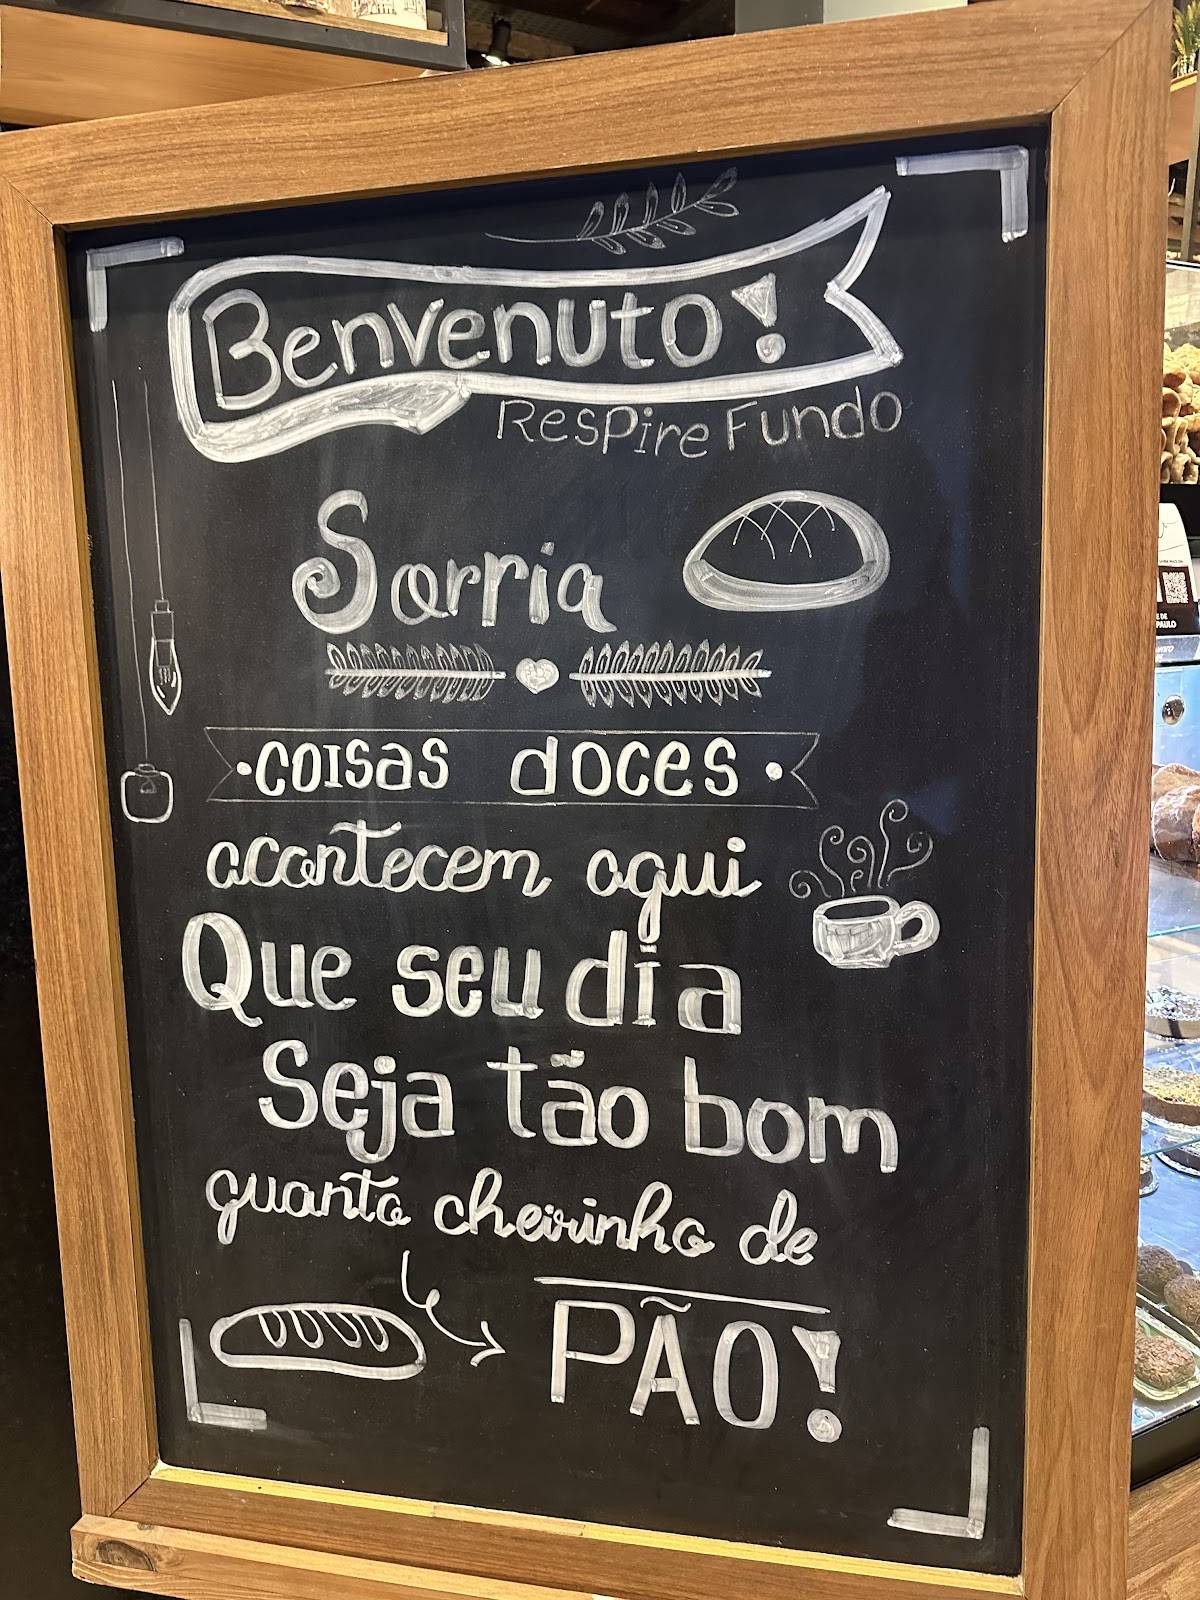 Benvenuto!
Respire Fundo
Sorria
• coisas doces •
acontecem aqui
Que seu dia
Seja tão bom
quanto cheirinho de
PÃO!